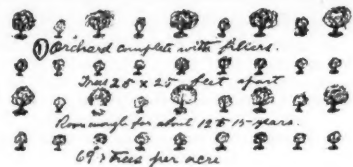 ① Orchard complete with fillers.
Trees 25 x 25 feet apart
Room enough for about 12 to 15 years.
69 > trees per acre